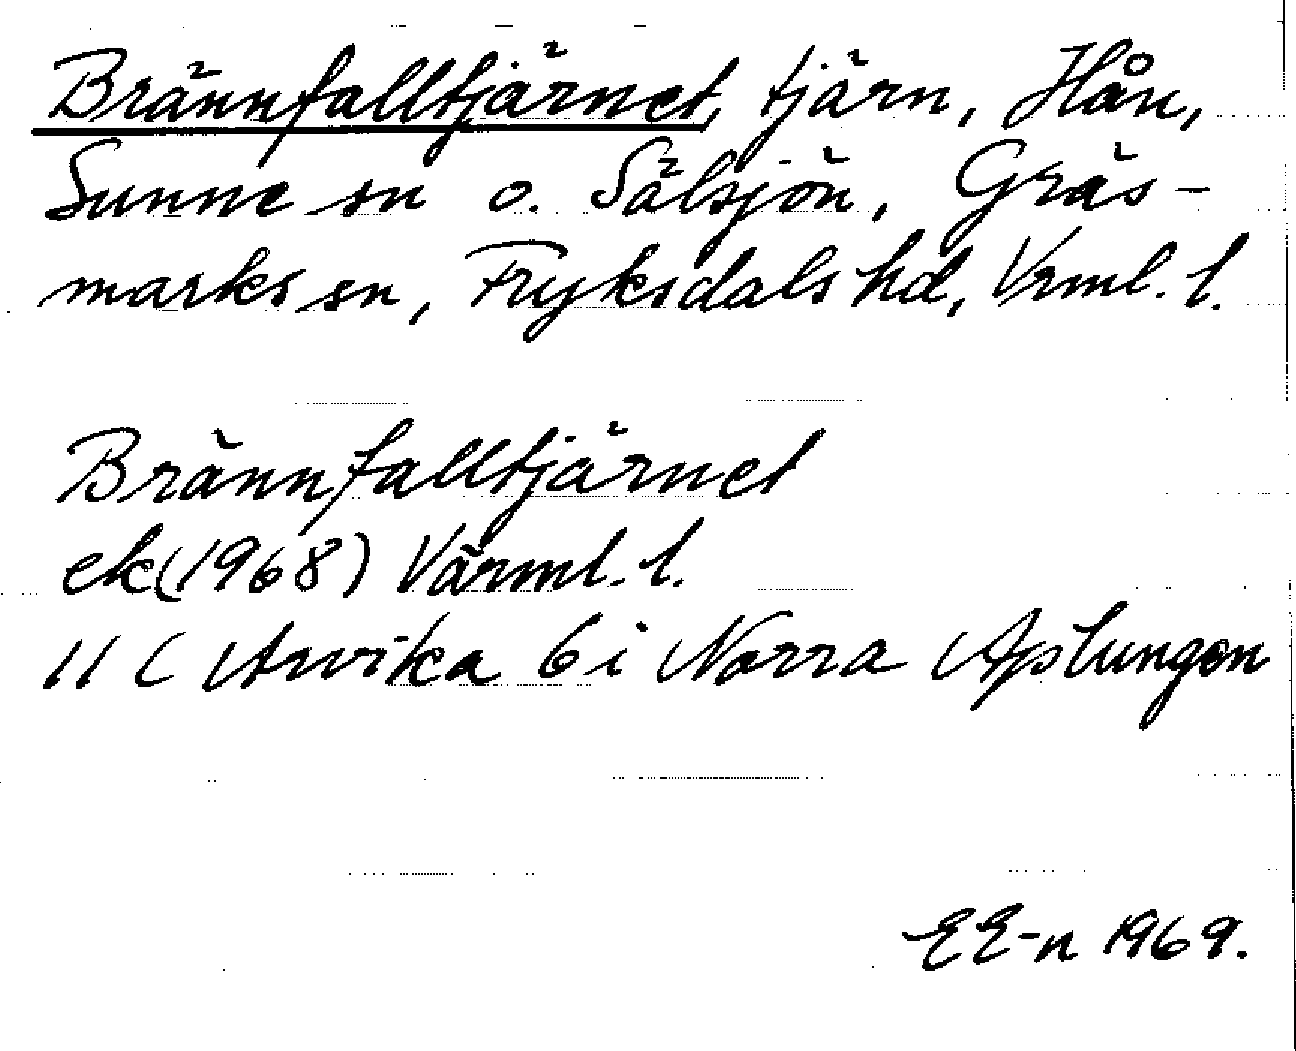 Brännfalltjärnet, tjärn, Hån,
Sunne sn o. Sälsjön, Gräs-
marks sn, Fryksdals hd, Vrml. l.
Brännfalltjärnet
ek (1968) Värml. l.
11 C Arvika 6 i Norra Aplungen
EE-n 1969.